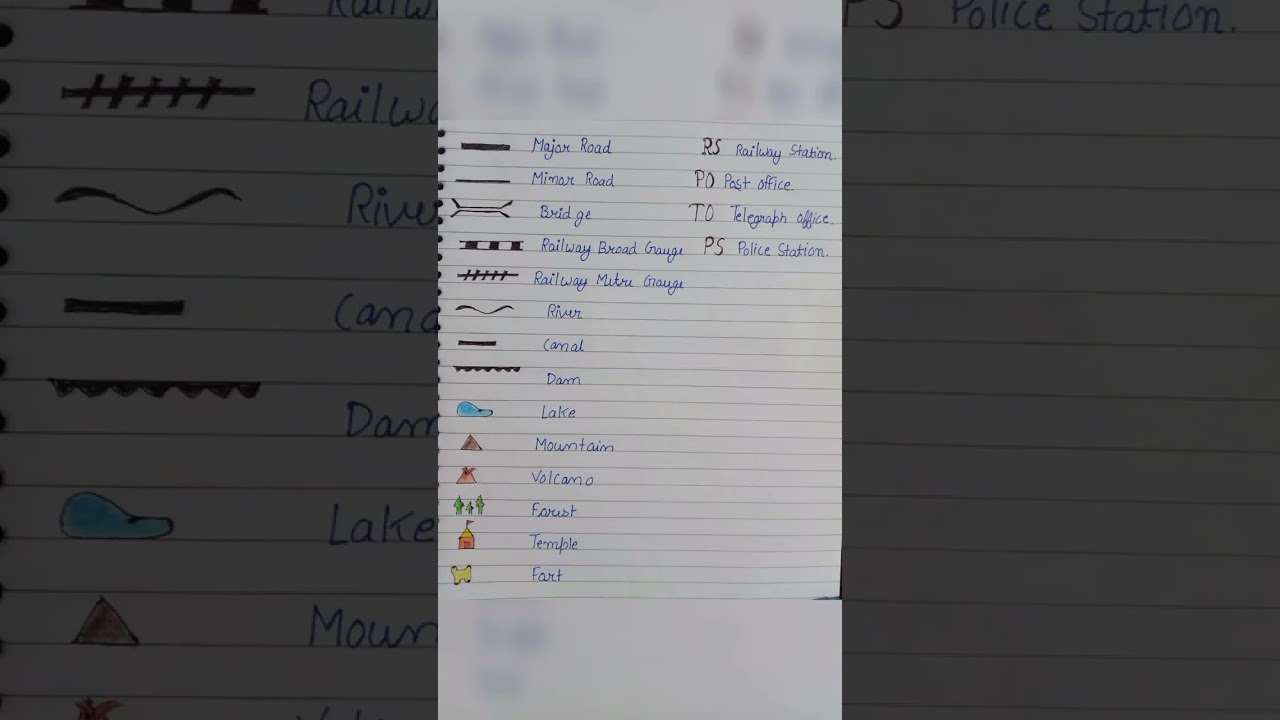 Major Road RS Railway Station.
Minor Road PO Post office.
Bridge TO Telegraph office.
Railway Broad Gauge PS Police Station.
Railway Metre Gauge
River
Canal
Dam
Lake
Mountain
Volcano
Forest
Temple
Fort